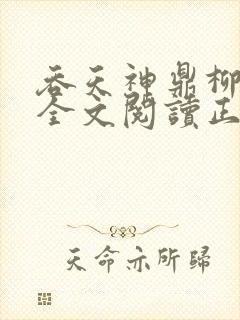 吞天神鼎柳
全文閱讀正
天命亦所歸